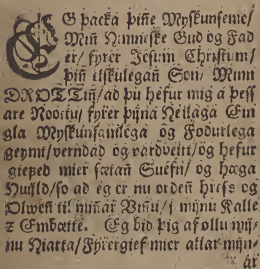 EG packa þijne Myskunseme/
Mijn Himneske Gud og Fad
er/ fyrer Jesum Christum/
þijn elskulegan Son/ Minn
DROTTIÑ/ ad þu hefur mig á þess
are Noottu/ fyrer þijna Heilaga Ein
gla Myskunsamlega og Fødurlega
geymt/ verndad og vardveitt/ og hefur
giefed mier sætan Suefn/ og hæga
Huijld/ so ad eg er nu orden hress og
Olwen til minnar Vinnu/ i mijnu Kalle
z Embætte. Eg bid þig af ollu mij-
nu Hiarta/ Fyrergief mier allar mijn-
ar